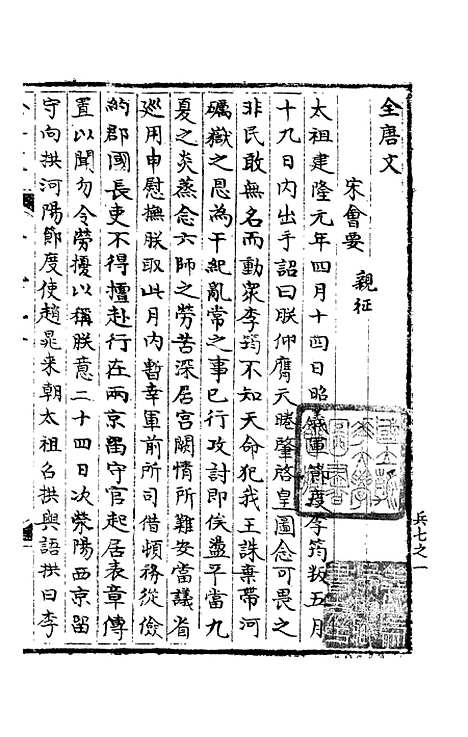 全唐文
宋會要
親征
太祖建隆元年四月十四日昭義軍節度李筠叛五月
十九日內出手詔曰朕仰膺天睠肇啓皇圖念可畏之
非民敢無名而動衆李筠不知天命犯我王誅棄帶河
礪嶽之恩為干紀亂常之事已行攻討即俟盪平當九
夏之炎蒸念六師之勞苦深居宮闕情所難安當議省
巡用申慰撫朕取此月內暫幸軍前所司借頓務從儉
約郡國長吏不得擅赴行在兩京留守官起居表章傳
置以聞勿令勞擾以稱朕意二十四日次滎陽西京留
守向拱河陽節度使趙晁來朝太祖召拱與語拱曰李
兵七之一